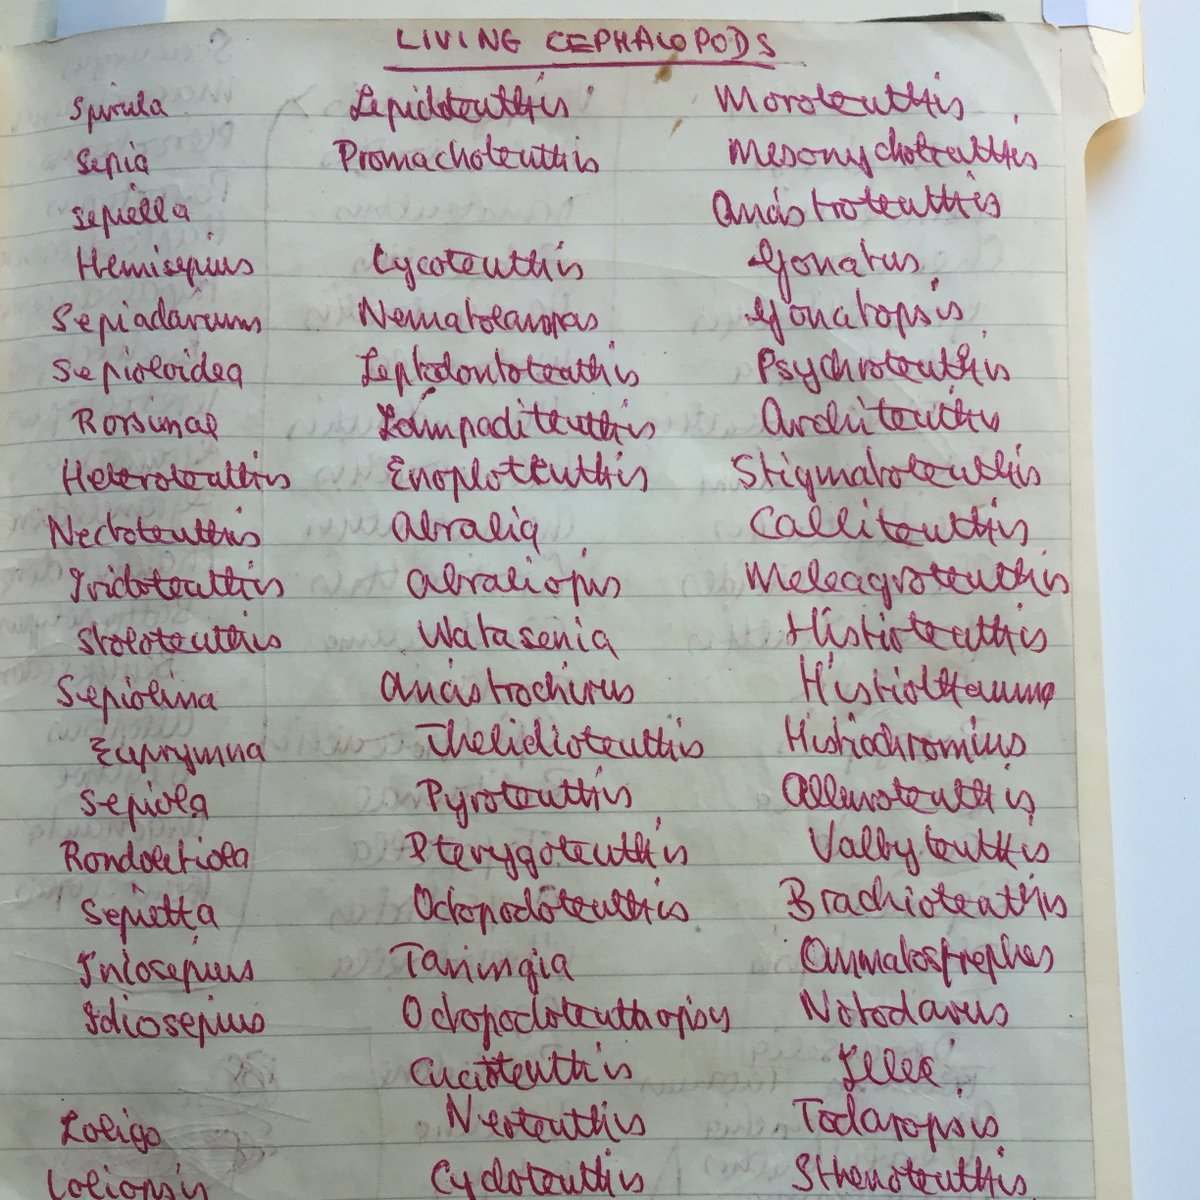 LIVING CEPHALOPODS
Spirula Lepidoteuthis Moroteuthis
Sepia Promachoteuthis Mesonychoteuthis
Sepiella Anastroteuthis
Hemisepius Lycoteuthis Gonatus
Sepiadarium Nematolampas Gonatopsis
Sepioloidea Leptodontoteuthis Psychroteuthis
Rorsinae Lampaditeuthis Architeuthis
Heteroteuthis Enoploteuthis Stigmatoteuthis
Nectoteuthis Abralia Calliteuthis
Iridoteuthis Abraliopsis Meleagroteuthis
Stoloteuthis Watasenia Histioteuthis
Sepiolina Anastrochirus Histiothauma
Euprymna Thelidioteuthis Histiochromius
Sepiola Pyroteuthis Alluroteuthis
Rondeletiola Pterygoteuthis Valbyteuthis
Sepietta Octopodoteuthis Brachioteuthis
Iniosepius Taningia Ommatostrephes
Idiosepius Octopodoteuthopsis Notodarus
Cucioteuthis Illex
Loligo Neoteuthis Todaropsis
Loliopsis Cycloteuthis Sthenoteuthis